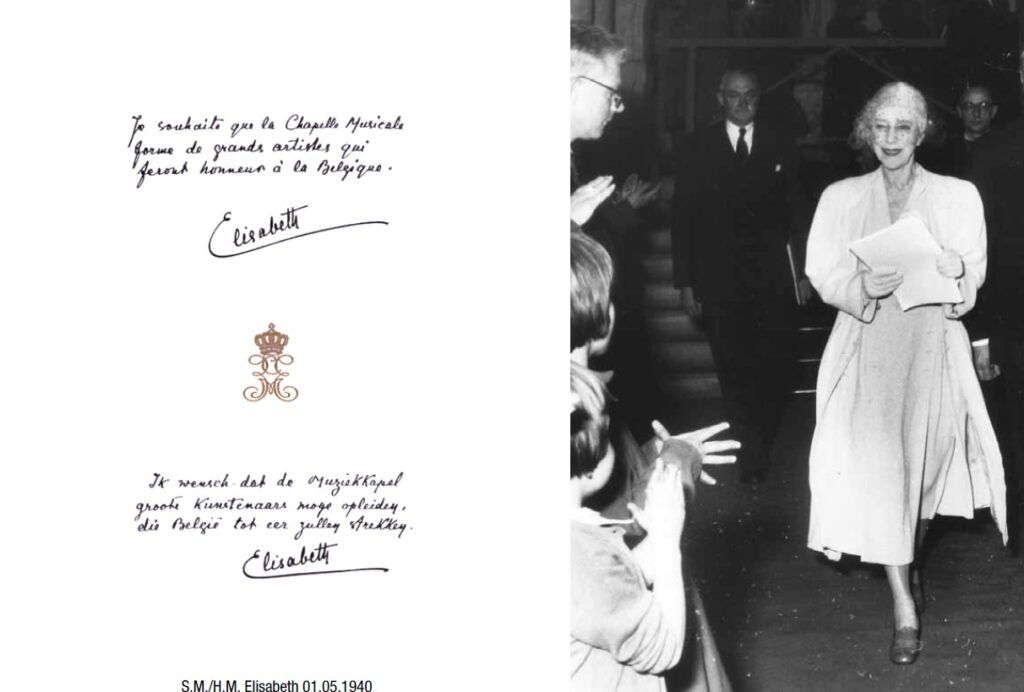 Je souhaite que la Chapelle Musicale
forme de grands artistes qui
feront honneur à la Belgique.
Elisabeth
Ik wensch dat de Muziekkapel
groote Kunstenaars moge opleiden,
die België tot eer zullen strekken.
Elisabeth
S.M./H.M. Elisabeth 01.05.1940